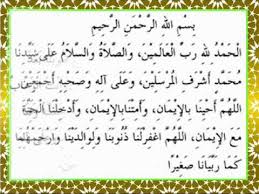 بِسْمِ اللهِ الرَّحْمَنِ الرَّحِيمِ
الْحَمْدُ لِلهِ رَبِّ الْعَالَمِيْنَ، وَالصَّلَاةُ وَالسَّلَامُ عَلَى سَيِّدِنَا
مُحَمَّدٍ أَشْرَفِ الْمُرْسَلِيْنَ، وَعَلَى آلِهِ وَصَحْبِهِ أَجْمَعِيْنَ
اللَّهُمَّ أَحْيِنَا بِالْإِيْمَانِ، وَأَمِتْنَا بِالْإِيْمَانِ، وَأَدْخِلْنَا الْجَنَّةَ
مَعَ الْإِيْمَانِ، اللَّهُمَّ اغْفِرْلَنَا ذُنُوْبَنَا وَلِوَالِدَيْنَا وَارْحَمْهُمَا
كَمَا رَبَّيَانَا صَغِيْرًا